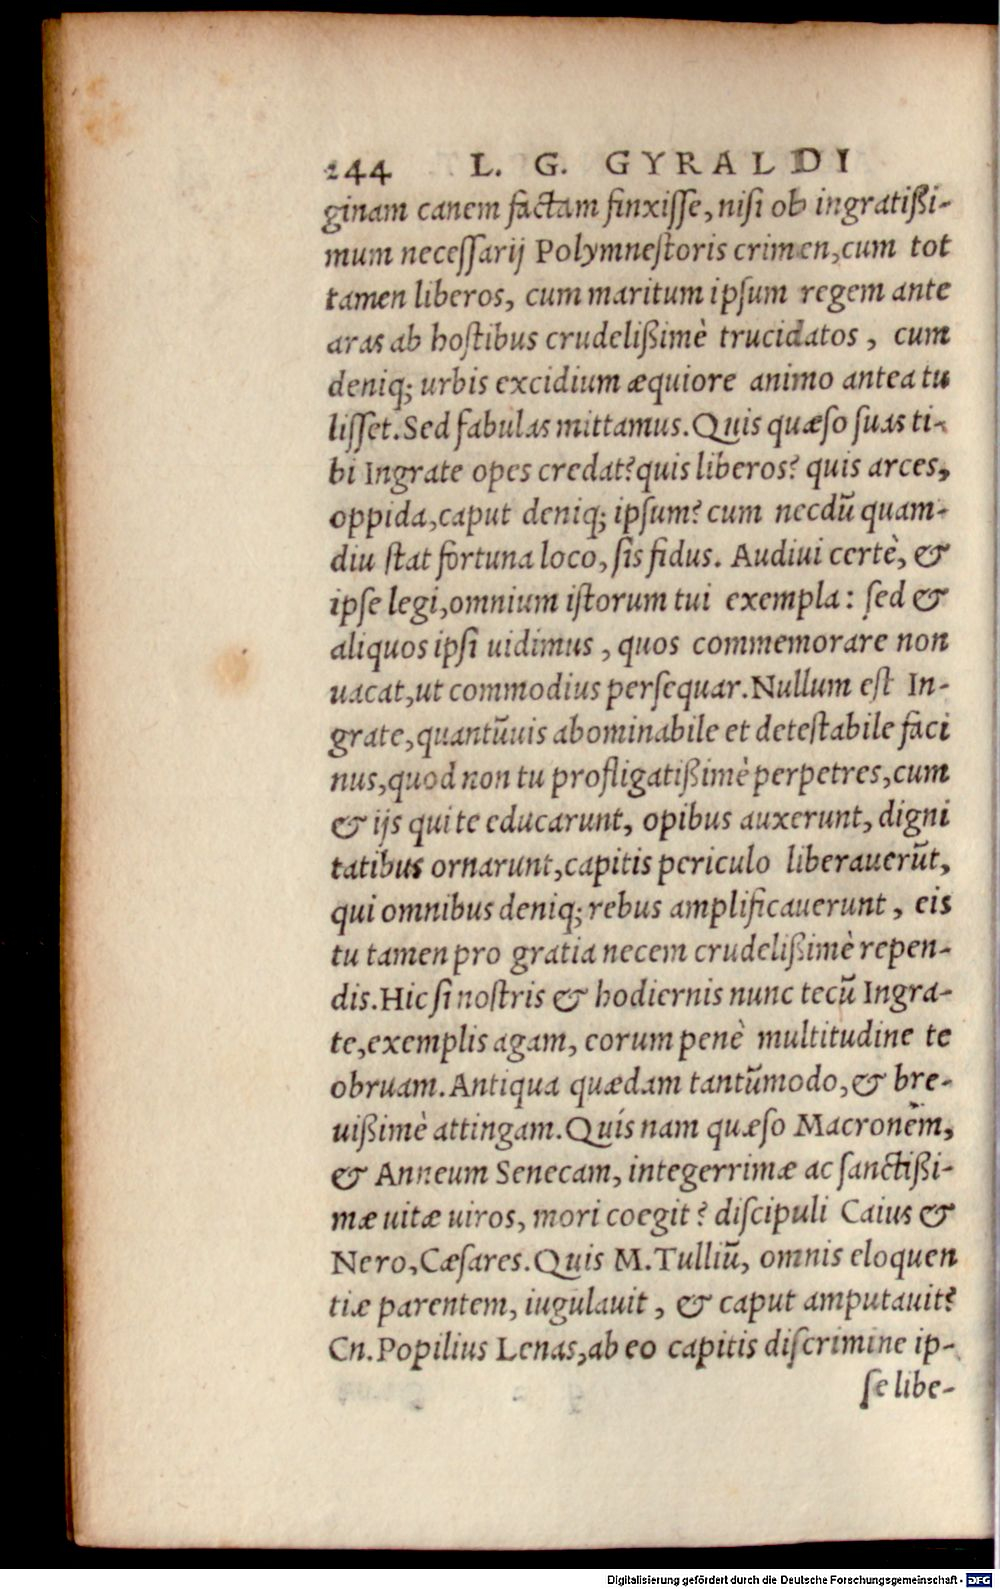 244 L. G. GYRALDI
ginam canem factam finxiſſe, niſi ob ingratißi-
mum neceſſarij Polymneſtoris crimen, cum tot
tamen liberos, cum maritum ipſum regem ante
aras ab hoſtibus crudelißimè trucidatos, cum
deniq; urbis excidium æquiore animo antea tu
liſſet. Sed fabulas mittamus. Quis quæſo ſuas ti-
bi Ingrate opes credat? quis liberos? quis arces,
oppida, caput deniq; ipſum? cum necdũ quam-
diu ſtat fortuna loco, ſis fidus. Audiui certè, &
ipſe legi, omnium iſtorum tui exempla: ſed &
aliquos ipſi uidimus, quos commemorare non
uacat, ut commodius perſequar. Nullum eſt In-
grate, quantũuis abominabile et deteſtabile faci
nus, quod non tu profligatißimè perpetres, cum
& ijs qui te educarunt, opibus auxerunt, digni
tatibus ornarunt, capitis periculo liberauerũt,
qui omnibus deniq; rebus amplificauerunt, eis
tu tamen pro gratia necem crudelißimè repen-
dis. Hic ſi noſtris & hodiernis nunc tecũ Ingra-
te, exemplis agam, eorum penè multitudine te
obruam. Antiqua quædam tantũmodo, & bre-
uißimè attingam. Quis nam quæſo Macronem,
& Anneum Senecam, integerrimæ ac ſanctißi-
mæ uitæ uiros, mori coegit? diſcipuli Caius &
Nero, Cæſares. Quis M. Tulliũ, omnis eloquen
tiæ parentem, iugulauit, & caput amputauit?
Cn. Popilius Lenas, ab eo capitis diſcrimine ip-
ſe libe-
Digitalisierung gefördert durch die Deutsche Forschungsgemeinschaft - DFG